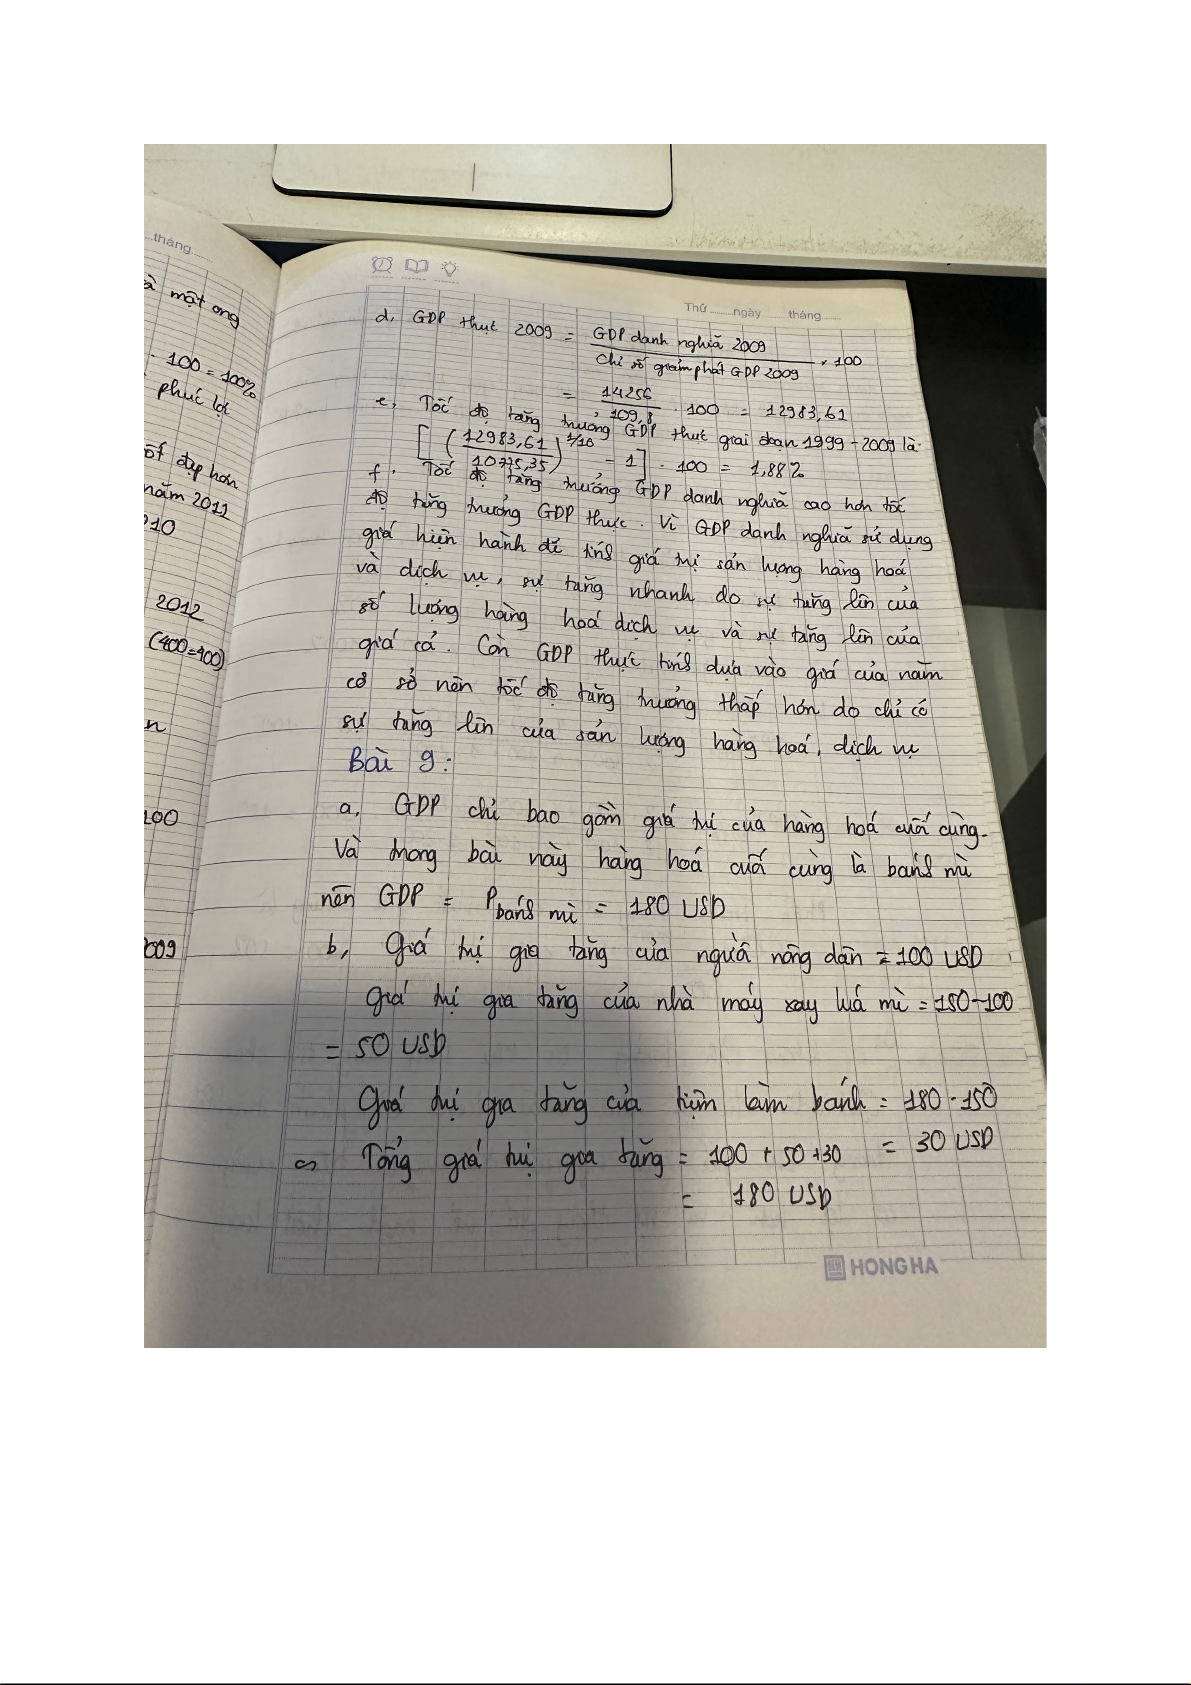 ...tháng......
mật ong
- 100 = 100%
phúc lợi
đẹp hơn
năm 2011
2012
(400=400)
n
100
009
Thứ ........ ngày ...... tháng......
d, GDP thực 2009 = GDP danh nghĩa 2009 / Chỉ số giảm phát GDP 2009 × 100
= 14256 / 109,8 . 100 = 12983,61
e, Tốc độ tăng trưởng GDP thực giai đoạn 1999-2009 là:
[(12983,61 / 10775,35)^1/10 - 1] . 100 = 1,88%
f. Tốc độ tăng trưởng GDP danh nghĩa cao hơn tốc
độ tăng trưởng GDP thực. Vì GDP danh nghĩa sử dụng
giá hiện hành để tính giá trị sản lượng hàng hoá
và dịch vụ, sự tăng nhanh do sự tăng lên của
số lượng hàng hoá dịch vụ và sự tăng lên của
giá cả. Còn GDP thực tính dựa vào giá của năm
cơ sở nên tốc độ tăng trưởng thấp hơn do chỉ có
sự tăng lên của sản lượng hàng hoá, dịch vụ
Bài 9:
a, GDP chỉ bao gồm giá trị của hàng hoá cuối cùng.
Và trong bài này hàng hoá cuối cùng là bánh mì
nên GDP = Pbánh mì = 180 USD
b, Giá trị gia tăng của người nông dân = 100 USD
Giá trị gia tăng của nhà máy xay lúa mì = 150-100
= 50 USD
Giá trị gia tăng của tiệm làm bánh = 180 - 150
= 30 USD
c, Tổng giá trị gia tăng = 100 + 50 + 30
= 180 USD
HONG HA